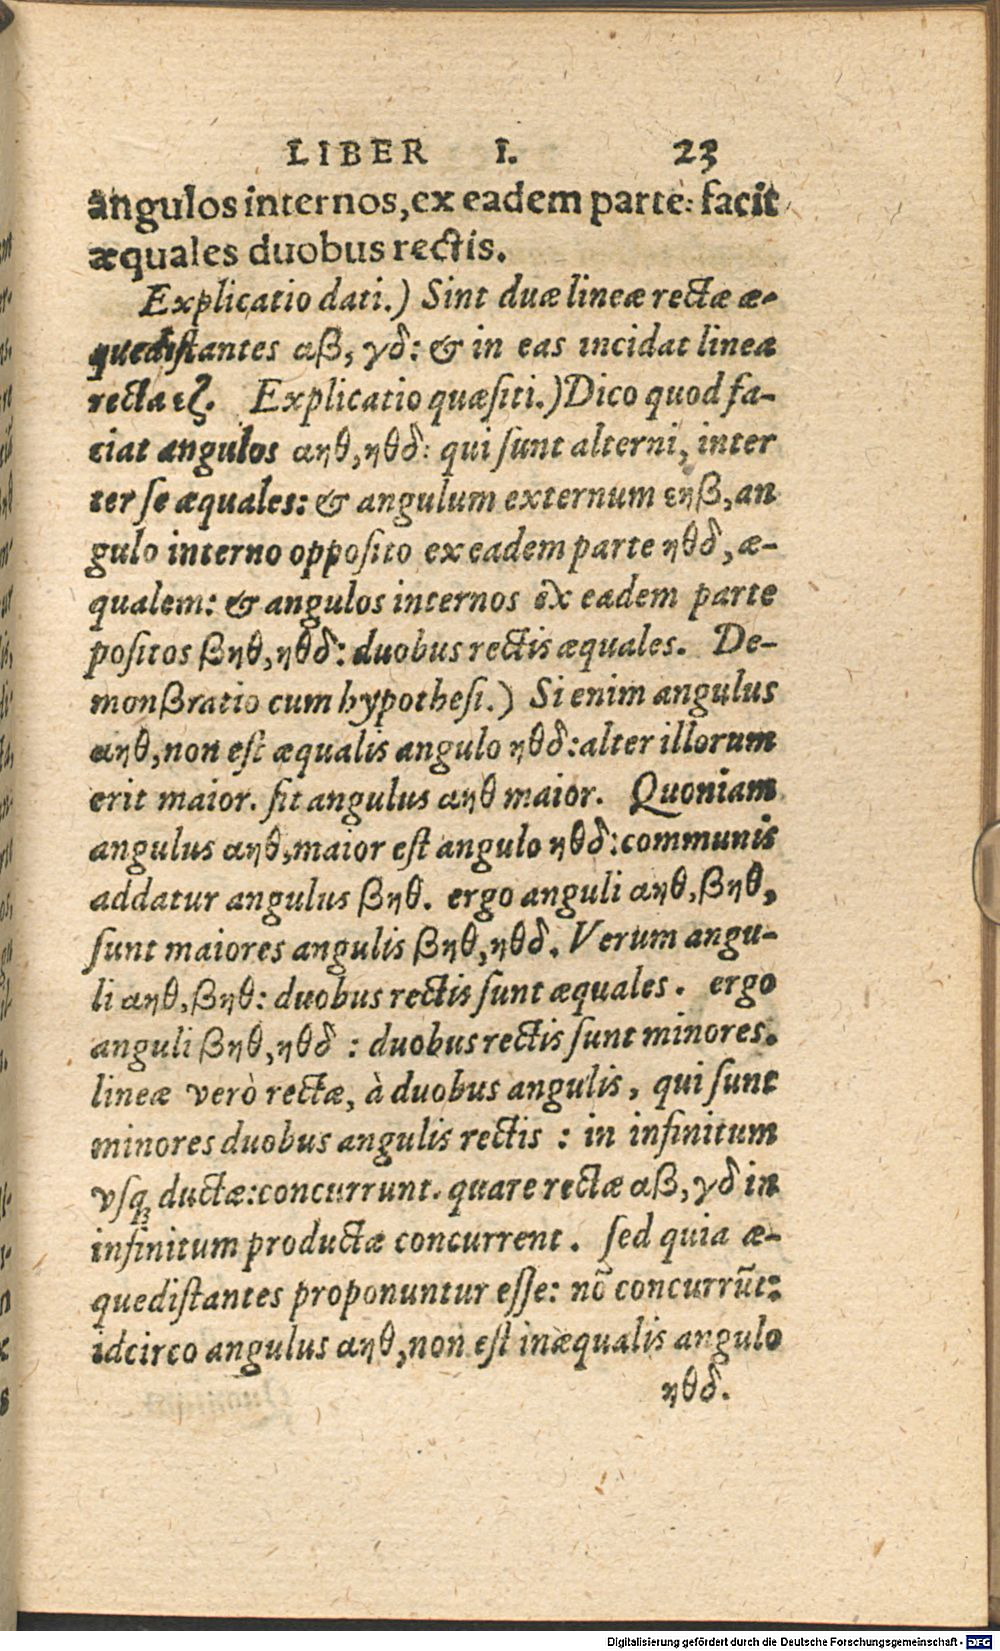 LIBER I. 23
angulos internos, ex eadem parte: facit
æquales duobus rectis.
Explicatio dati.) Sint duæ lineæ rectæ æ-
quedistantes αβ, γδ: & in eas incidat linea
recta εζ. Explicatio quæsiti.) Dico quod fa-
ciat angulos αηθ, ηθδ: qui sunt alterni, inter
ter se æquales: & angulum externum εηβ, an
gulo interno opposito ex eadem parte ηθδ, æ-
qualem: & angulos internos ex eadem parte
positos βηθ, ηθδ: duobus rectis æquales. De-
monßratio cum hypothesi.) Si enim angulus
αηθ, non est æqualis angulo ηθδ: alter illorum
erit maior. sit angulus αηθ maior. Quoniam
angulus αηθ, maior est angulo ηθδ: communis
addatur angulus βηθ. ergo anguli αηθ, βηθ,
sunt maiores angulis βηθ, ηθδ. Verum angu-
li αηθ, βηθ: duobus rectis sunt æquales. ergo
anguli βηθ, ηθδ : duobus rectis sunt minores.
lineæ verò rectæ, à duobus angulis, qui sunt
minores duobus angulis rectis : in infinitum
vsq; ductæ: concurrunt. quare rectæ αβ, γδ in
infinitum productæ concurrent. sed quia æ-
quedistantes proponuntur esse: nõ concurrũt:
idcirco angulus αηθ, non est inæqualis angulo
ηθδ.
Digitalisierung gefördert durch die Deutsche Forschungsgemeinschaft - DFG